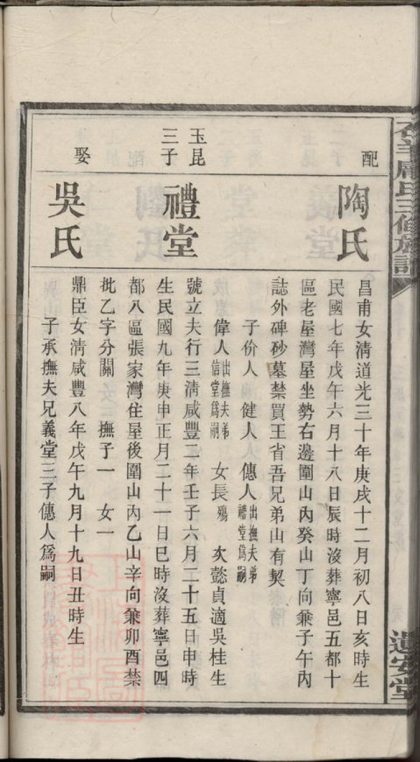 遺安堂
配
陶氏
昌甫女清道光三十年庚戌十二月初八日亥時生
民國七年戊午六月十八日辰時沒葬寧邑五都十
區老屋灣屋坐勢右邊圍山內癸山丁向兼子午內
誌外碑砂墓禁買王省吾兄弟山有契
子份人 健人 傳人出撫夫弟禮堂爲嗣
偉人出撫夫弟信堂爲嗣 女長殤 次懿貞適吳桂生
玉昆
三子
禮堂
號立夫行三清咸豐二年壬子六月二十五日申時
生民國九年庚申正月二十一日巳時沒葬寧邑四
都八區張家灣住屋後圍山內乙山辛向兼卯酉禁
批乙字分關 撫子一 女一
娶
吳氏
鼎臣女清咸豐八年戊午九月十九日丑時生
子承撫夫兄義堂三子傳人爲嗣